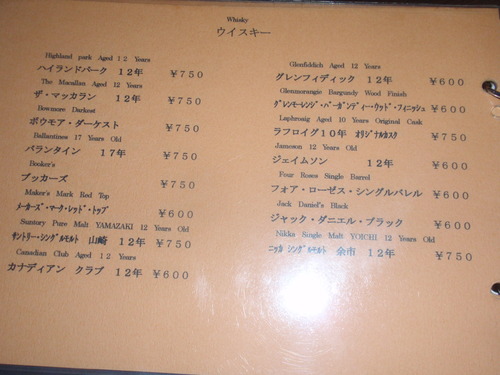 Whisky
ウイスキー
Highland park Aged 12 Years
ハイランドパーク 12年 ￥750
The Macallan Aged 12 Years
ザ・マッカラン 12年 ￥750
Bowmore Darkest
ボウモア・ダーケスト ￥750
Ballantines 17 Years Old
バランタイン 17年 ￥750
Booker's
ブッカーズ ￥750
Maker's Mark Red Top
メーカーズ・マーク・レッド・トップ ￥600
Suntory Pure Malt YAMAZAKI 12 Years Old
サントリー・シングルモルト 山崎 12年 ￥750
Canadian Club Aged 12 Years
カナディアン クラブ 12年 ￥600
Glenfiddich Aged 12 Years
グレンフィディック 12年 ￥600
Glenmorangie Burgundy Wood Finish
グレンモーレンジ・バーガンディー・ウッド・フィニッシュ ￥600
Laphroaig Aged 10 Years Original Cask
ラフロイグ10年 オリジナルカスク ￥750
Jameson 12 Years Old
ジェイムソン 12年 ￥600
Four Roses Single Barrel
フォア・ローゼス・シングルバレル ￥600
Jack Daniel's Black
ジャック・ダニエル・ブラック ￥600
Nikka Single Malt YOICHI 12 Years Old
ニッカ シングルモルト 余市 12年 ￥750